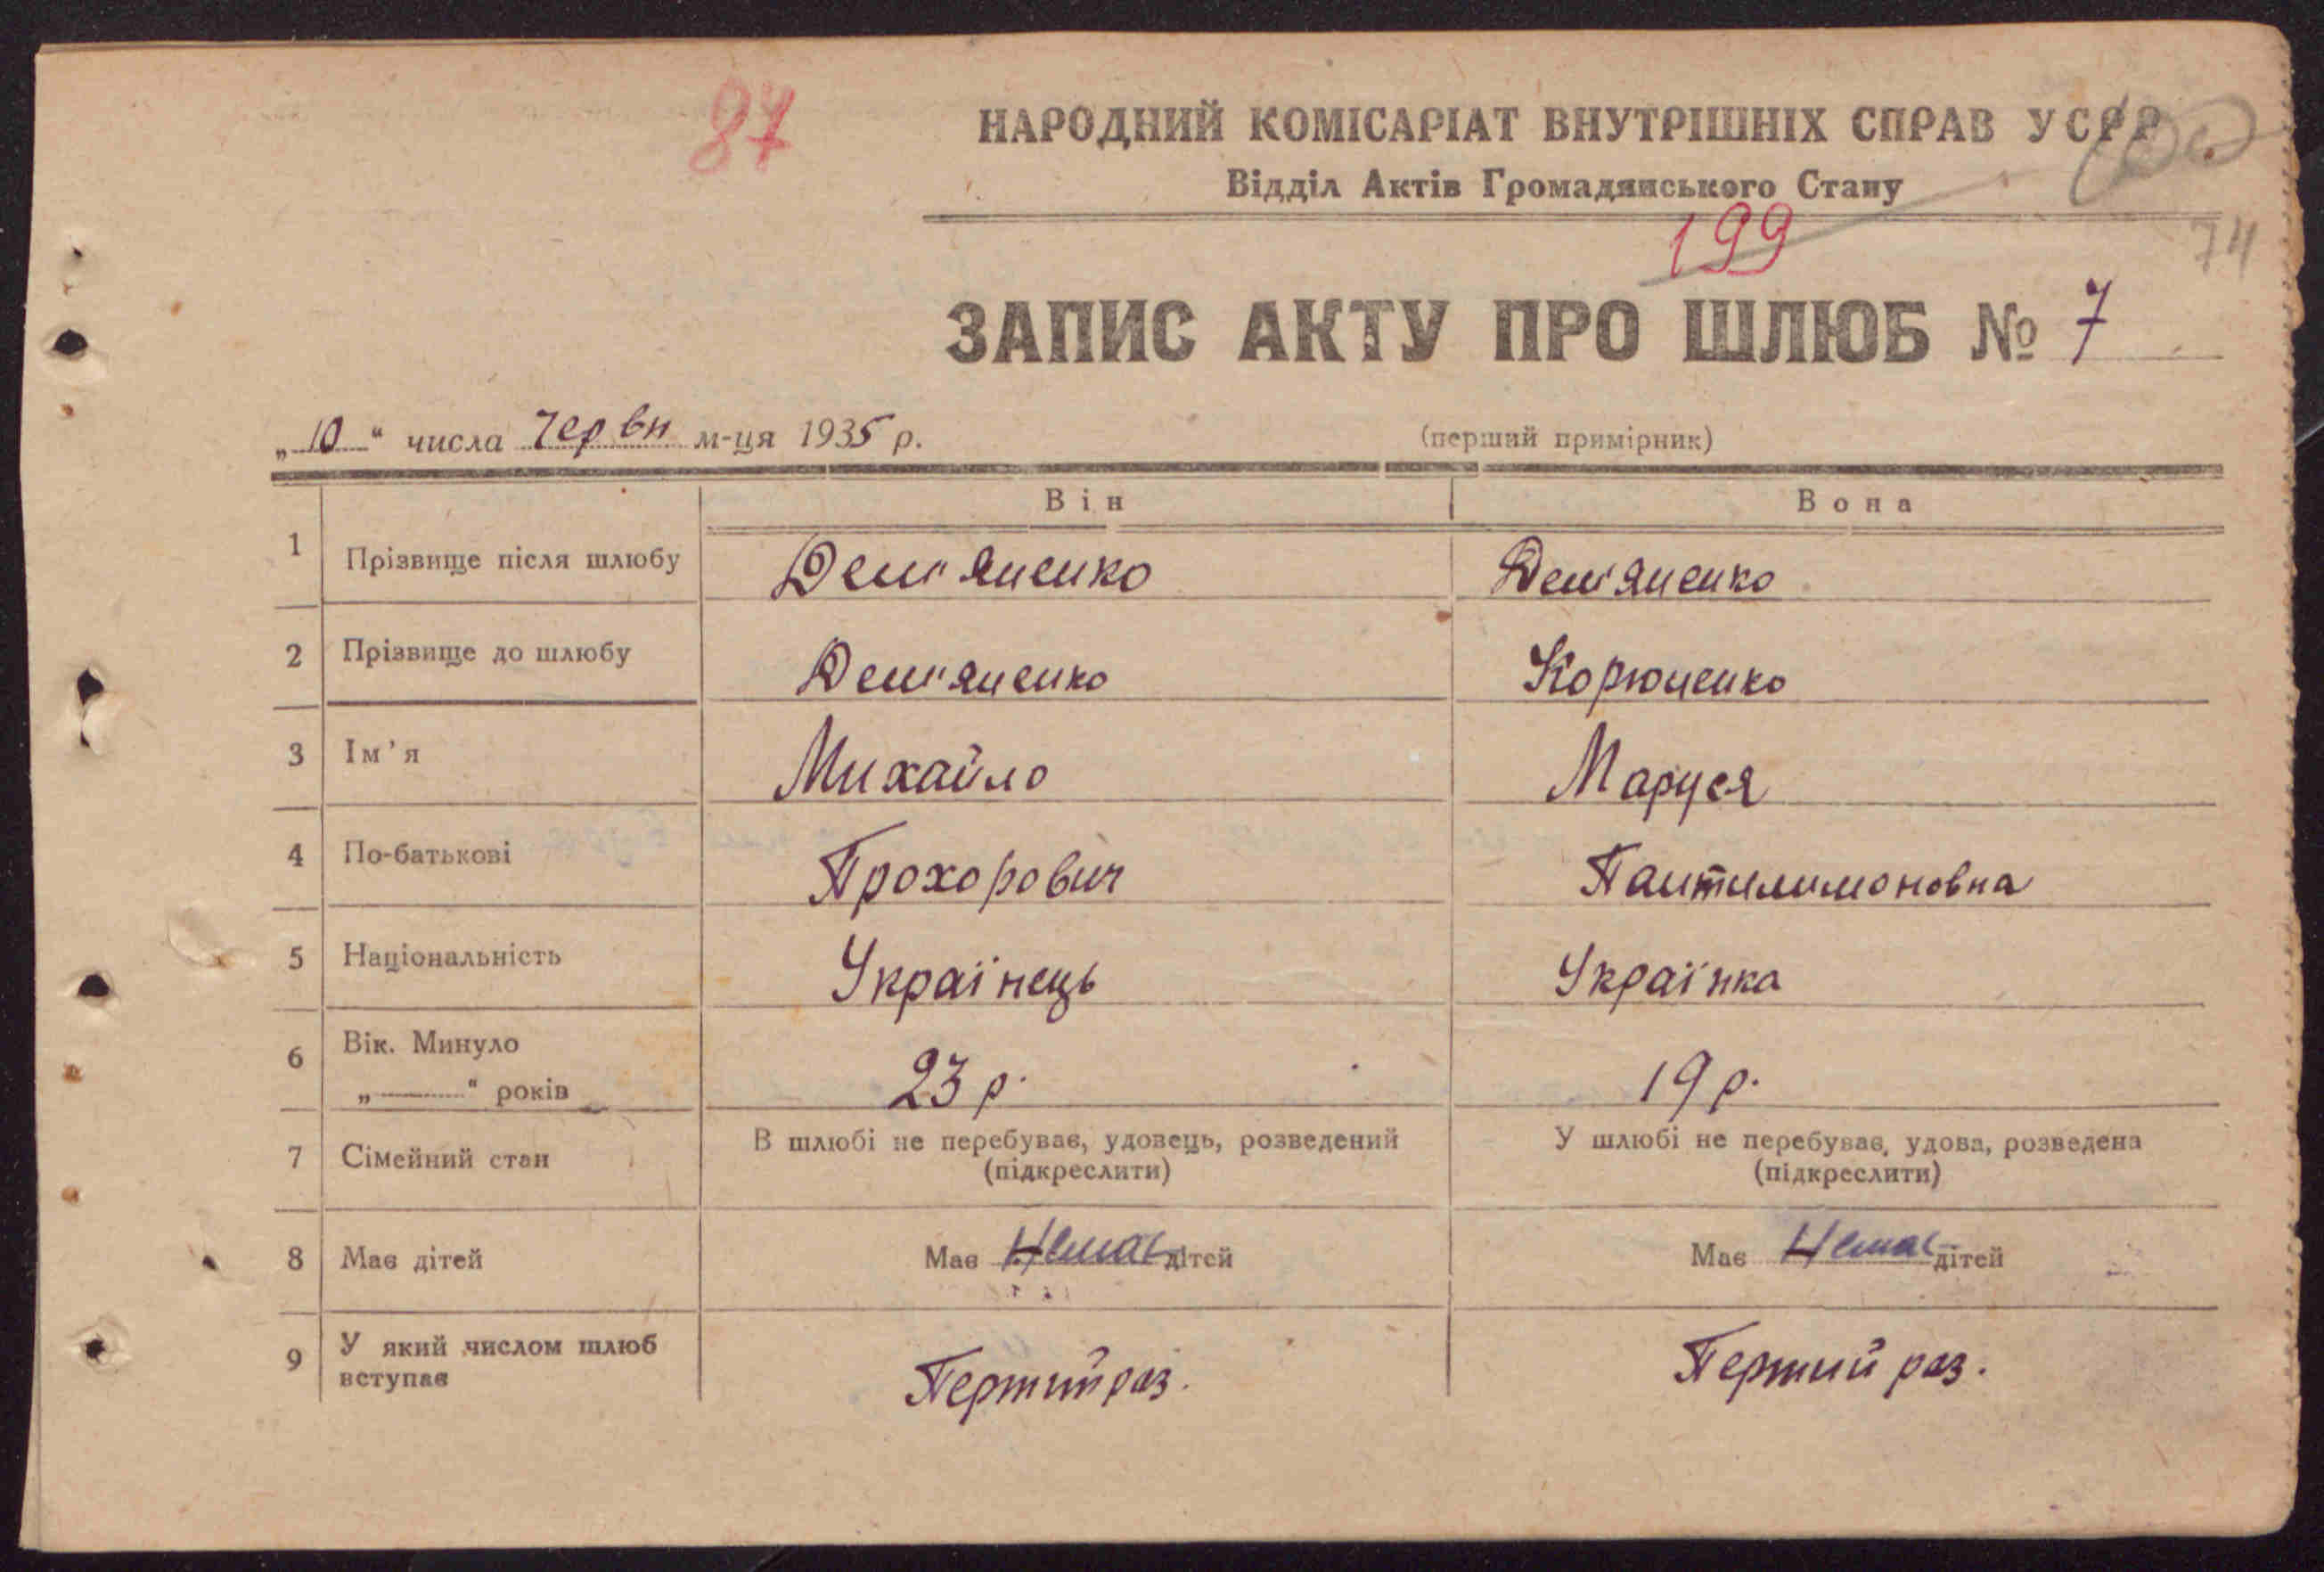 87
НАРОДНИЙ КОМІСАРІАТ ВНУТРІШНІХ СПРАВ УСРР
Відділ Актів Громадянського Стану
199
74
ЗАПИС АКТУ ПРО ШЛЮБ № 7
„10“ числа Червн м-ця 1935 р. (перший примірник)
Він Вона
1 Прізвище після шлюбу Дем'яненко Дем'яненко
2 Прізвище до шлюбу Дем'яненко Корюченко
3 Ім'я Михайло Маруся
4 По-батькові Прохорович Пантилимоновна
5 Національність Українець Українка
6 Вік. Минуло
„ “ років 23 р. 19 р.
7 Сімейний стан В шлюбі не перебував, удовець, розведений У шлюбі не перебував, удова, розведена
(підкреслити) (підкреслити)
8 Має дітей Має Немає дітей Має Немає дітей
9 У який числом шлюб
вступає Перший раз. Перший раз.